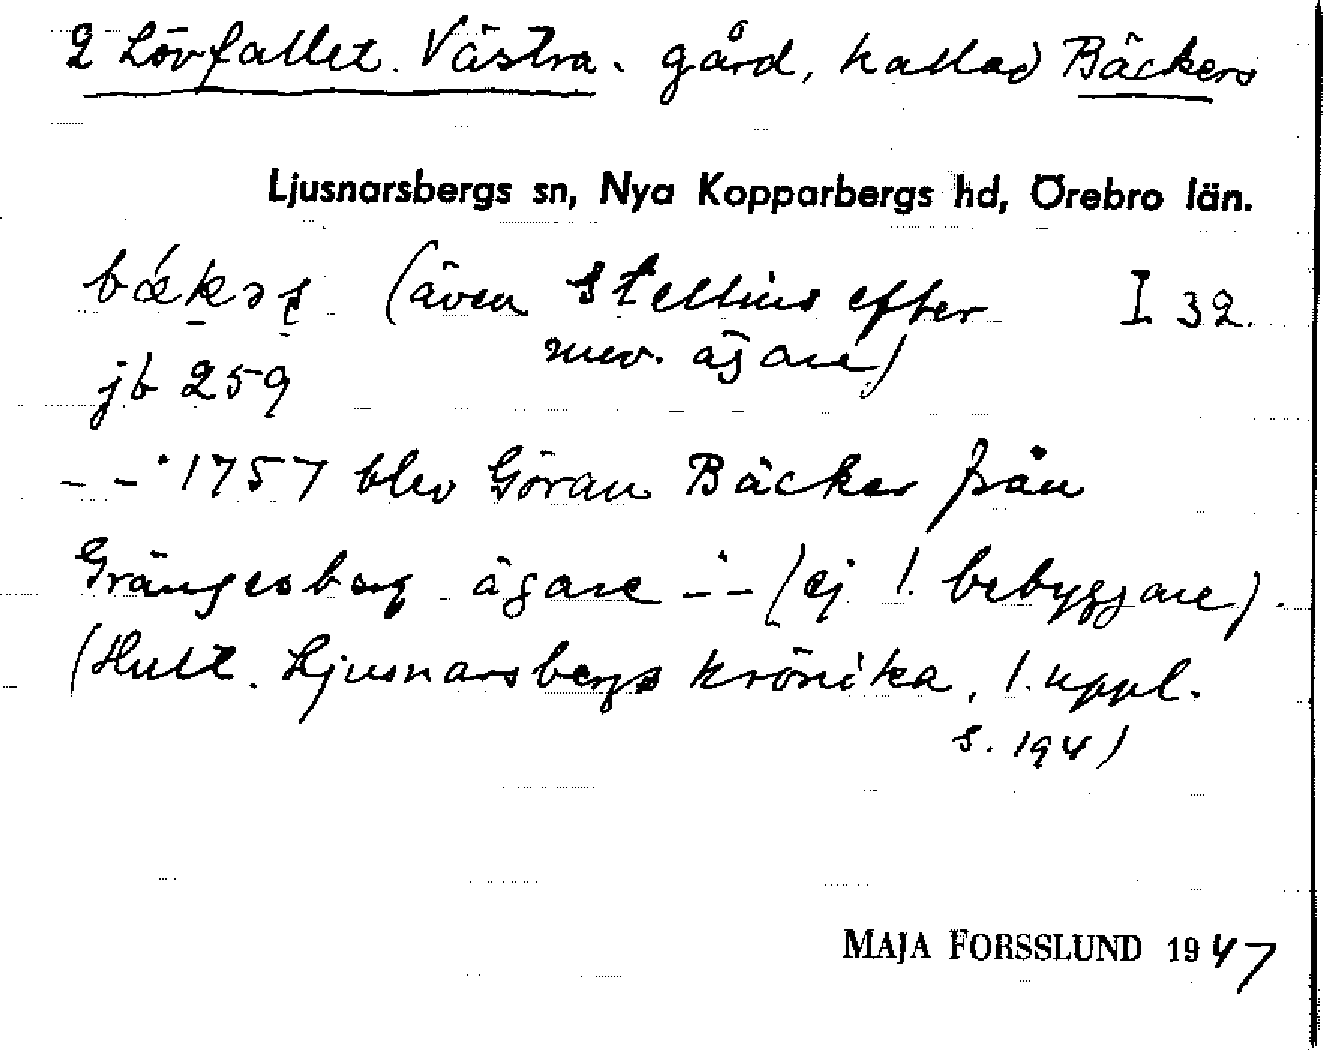 2 Lövfallet. Västra. gård, kallad Bäckers
Ljusnarsbergs sn, Nya Kopparbergs hd, Örebro län.
(även Stellins efter I 32.
nuv. ägare)
jb 259
- -· 1757 blev Göran Bäcker från
Grängesberg ägare -·- (ej 1. bebyggare).
(Hult. Ljusnarsbergs krönika, 1. uppl.
s. 194)
MAJA FORSSLUND 1947